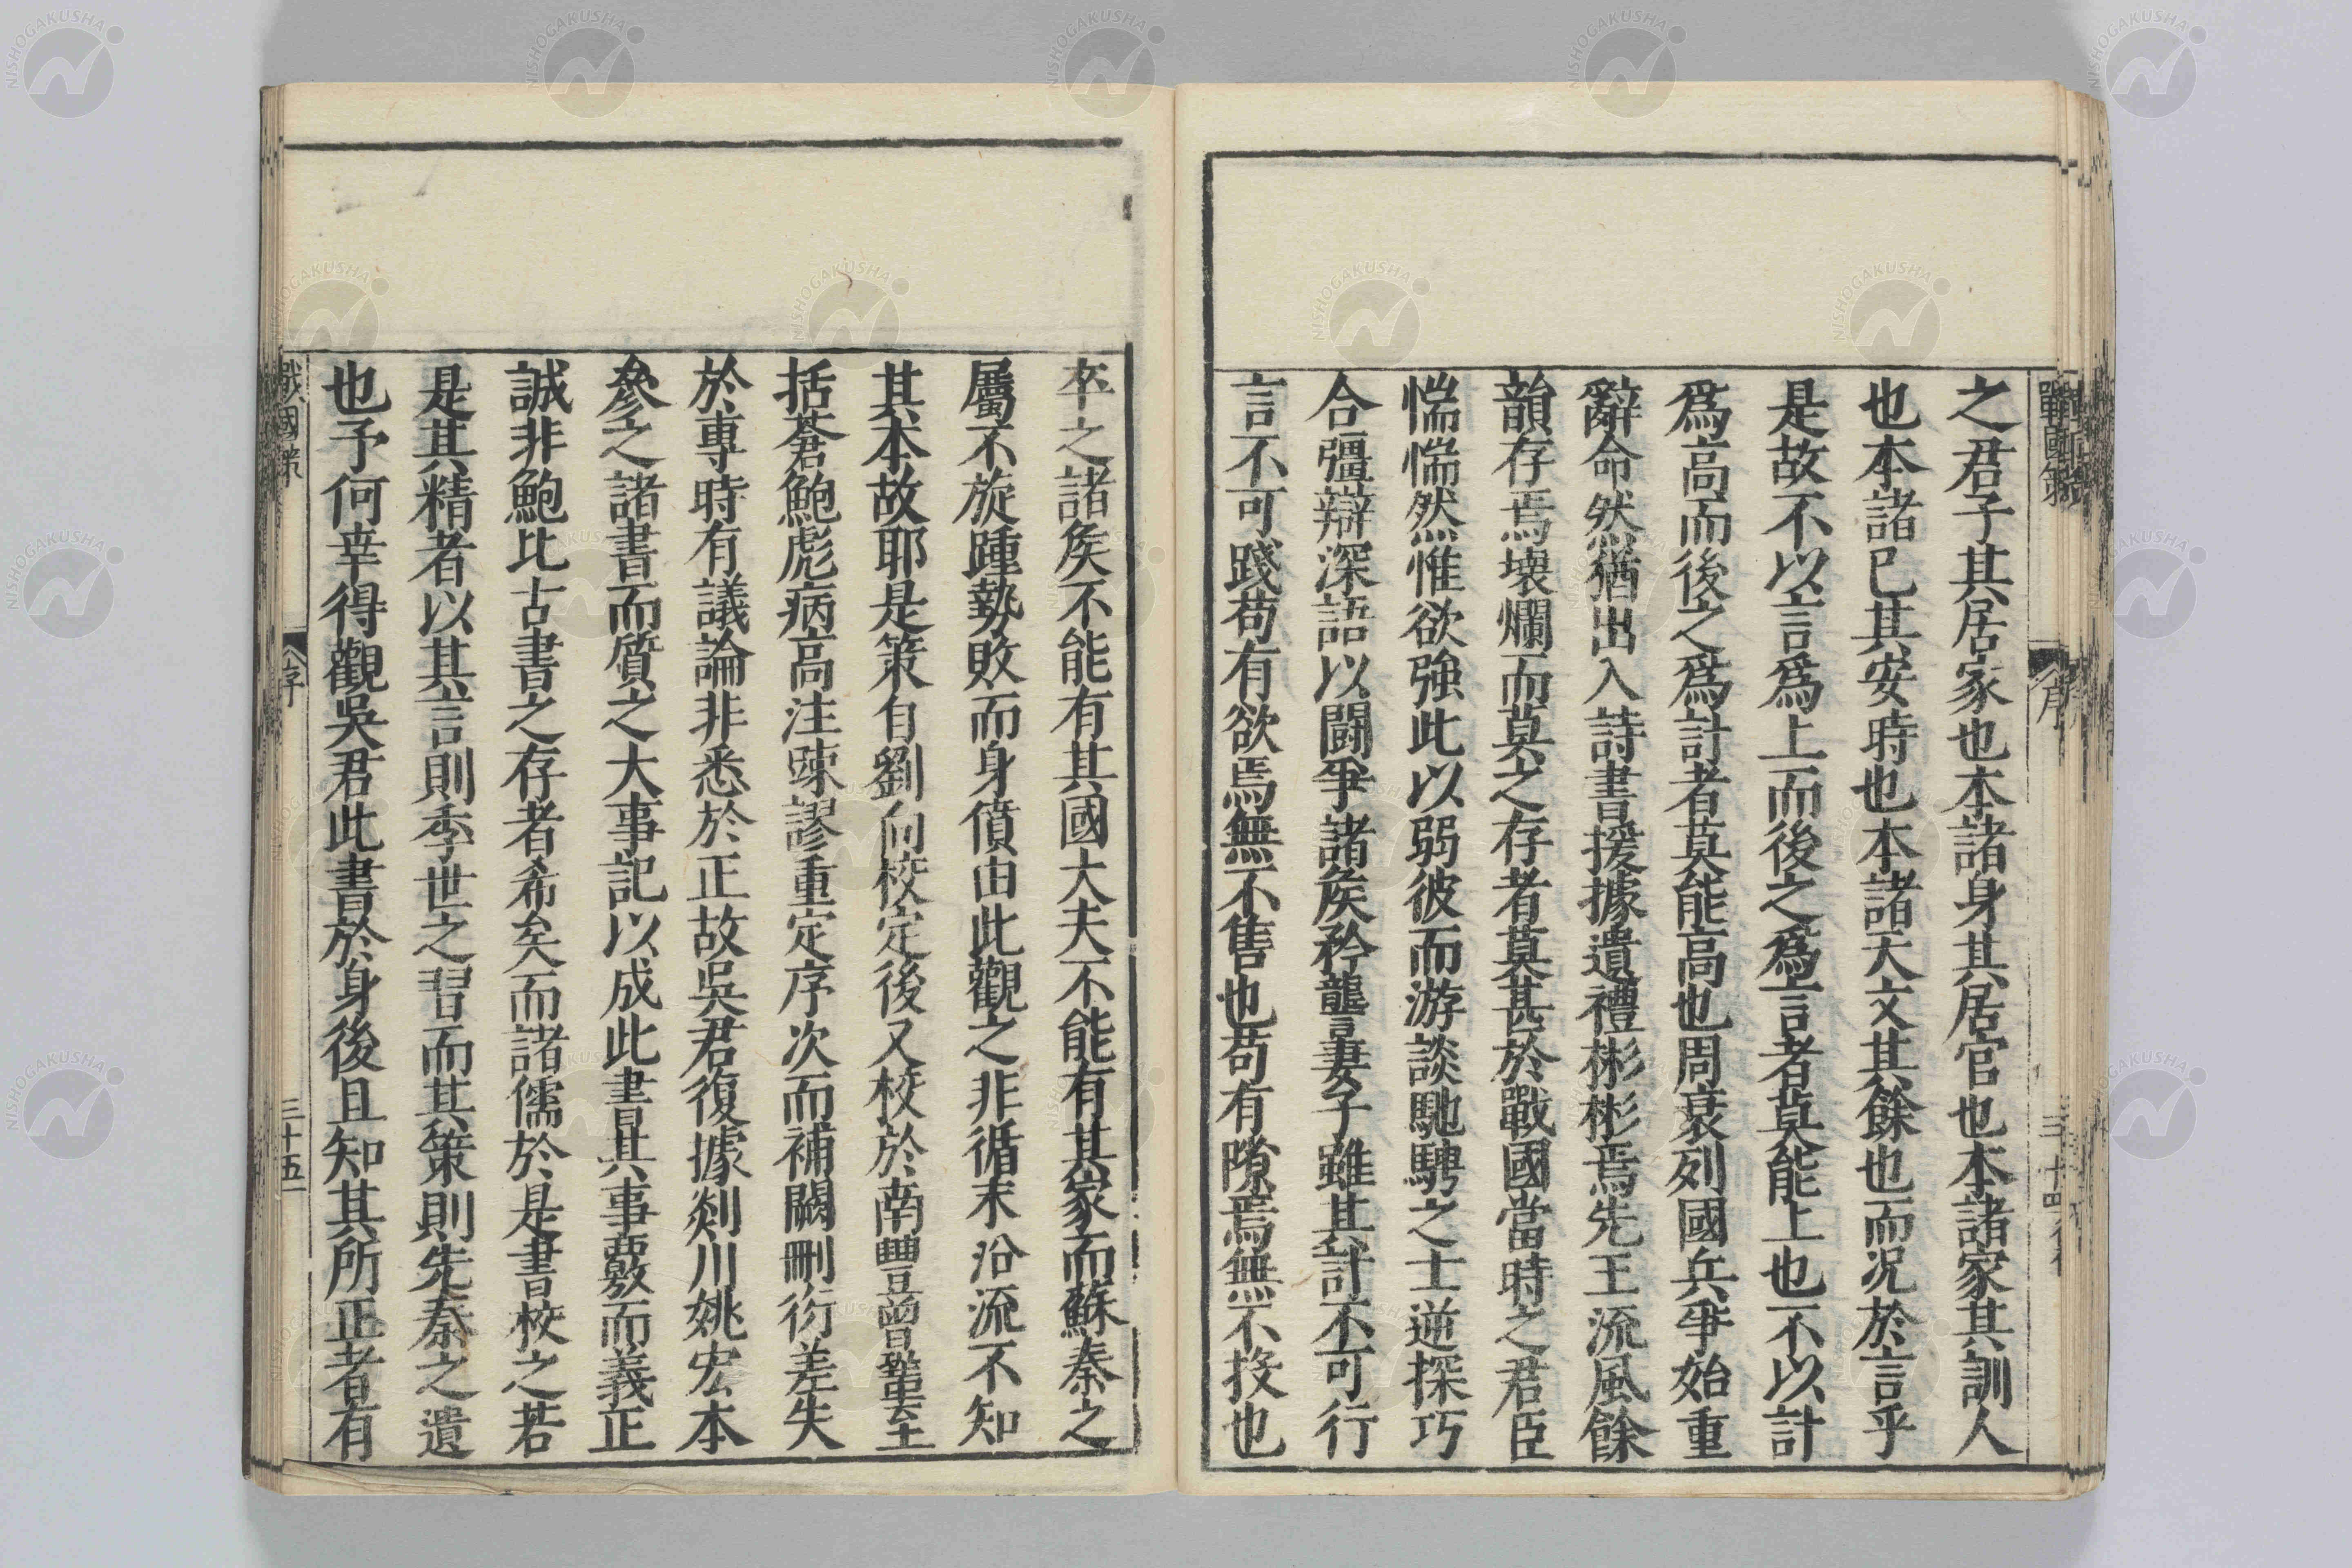 戰國策 序 三十四
之君子其居家也本諸身其居官也本諸家其訓人
也本諸已其安時也本諸天文其餘也而况於言乎
是故不以言爲上而後之爲言者莫能上也不以計
爲高而後之爲計者莫能高也周衰列國兵爭始重
辭命然猶出入詩書援據遺禮彬彬焉先王流風餘
韻存焉壞爛而莫之存者莫甚於戰國當時之君臣
惴惴然惟欲強此以弱彼而游談馳騁之士逆探巧
合彊辯深語以鬭爭諸矦矜讋妻子雖其計不可行
言不可踐苟有欲焉無不售也苟有隙焉無不投也
卒之諸矦不能有其國大夫不能有其家而蘇秦之
屬不旋踵勢敗而身僨由此觀之非循末沿流不知
其本故耶是策自劉向校定後又校於南豐曾鞏至
括蒼鮑彪病高注疎謬重定序次而補闕刪衍差失
於專時有議論非悉於正故吳君復據剡川姚宏本
參之諸書而質之大事記以成此書其事覈而義正
誠非鮑比古書之存者希矣而諸儒於是書校之若
是其精者以其言則季世之習而其策則先秦之遺
也予何幸得觀吳君此書於身後且知其所正者有
戰國策 序 三十五
NISHOGAKUSHA